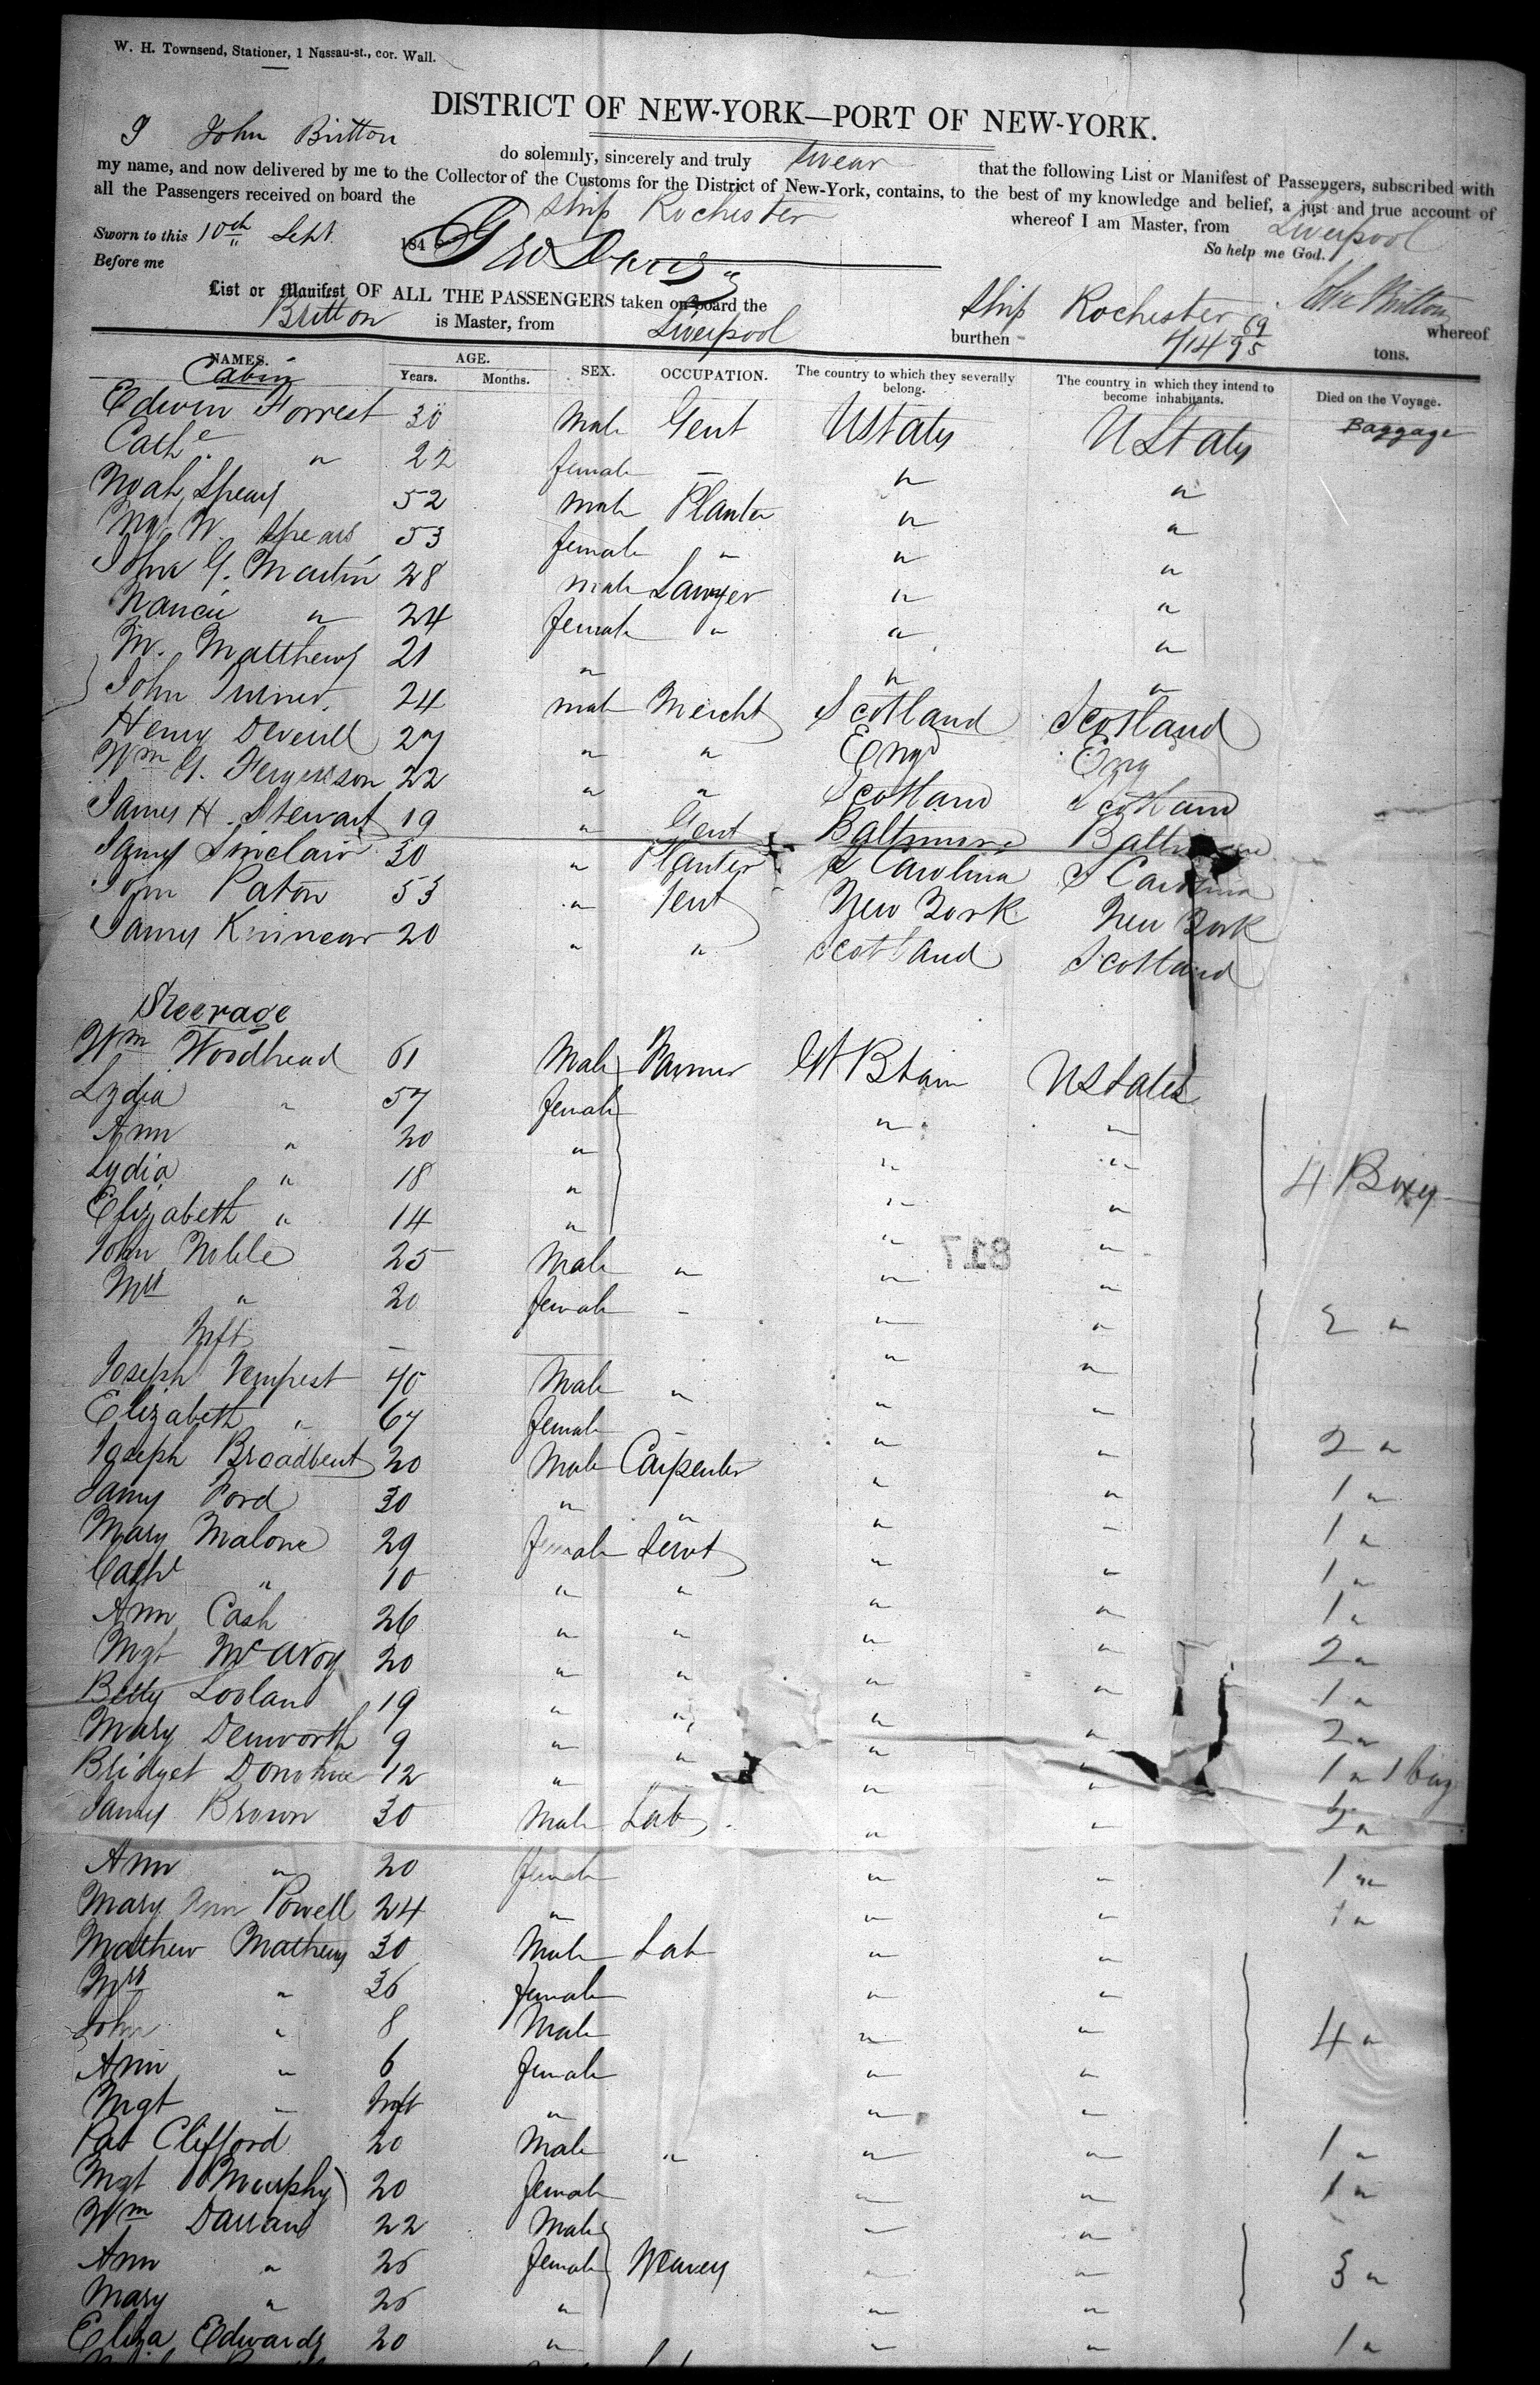 W. H. Townsend, Stationer, 1 Nassau-st., cor. Wall.
DISTRICT OF NEW-YORK—PORT OF NEW-YORK.
I John Britton do solemnly, sincerely and truly swear that the following List or Manifest of Passengers, subscribed with
my name, and now delivered by me to the Collector of the Customs for the District of New-York, contains, to the best of my knowledge and belief, a just and true account of
all the Passengers received on board the Ship Rochester whereof I am Master, from Liverpool
Sworn to this 10th Sept. 184 So help me God.
Before me Geo Davis John Britton
List or Manifest OF ALL THE PASSENGERS taken on board the Ship Rochester whereof
Britton is Master, from Liverpool burthen 714 69/95 tons.
NAMES. AGE. SEX. OCCUPATION. The country to which they severally belong. The country in which they intend to become inhabitants. Died on the Voyage.
Years. Months.
Cabin Baggage
Edwin Forrest 30 Male Gent UStates UStates
Cathe " 22 female — " "
Noah Spears 52 male Planter " "
W. Spears 53 female " " "
John G. Martin 28 male Lawyer " "
Nancie " 24 female " " "
M. Matthews 21 " " "
John Turner 24 male Mercht Scotland Scotland
Henry Deverill 27 " " Engd Eng
Wm G. Fergusson 22 " " Scotland Scotland
James H. Stewart 19 " Gent Baltimore Baltimore
James Sinclair 30 " Planter S Carolina S Carolina
John Paton 53 " Gent New York New York
James Kinnear 20 " " Scotland Scotland
Steerage
Wm Woodhead 61 Male Farmer Gt Btain UStates
Lydia " 57 female " "
Ann " 20 " " "
Lydia " 18 " " " 4 Boxes
Elizabeth " 14 " " "
John Noble 25 Male " " "
Mrs " 20 female - " " 2 "
Inft — " "
Joseph Tempest 40 Male " " "
Elizabeth " 67 female - " " 2 "
Joseph Broadbent 20 Male Carpenter " " 1 "
James Ford 30 " " " " 1 "
Mary Malone 29 female Servt " " 1 "
Cathe " 10 " " " " 1 "
Ann Cash 26 " " " " 2 "
Mgt McAvoy 20 " " " " 1 "
Betty 19 " " " " 2 "
Mary Denworth 9 " " " " 1 " 1 bag
Bridget Donohue 12 " " "
James Brown 30 Male Lab " " 2 "
Ann " 20 female " " 1 "
Mary Ann Powell 24 " " " 1 "
Mathew Mathews 30 Male Lab " "
Mrs " 36 female " "
John " 8 Male " " 4 "
Ann " 6 female " "
Mgt " Inft " " "
Pat Clifford 20 Male " " " 1 "
Mgt Murphy 20 female " " 1 "
Wm 22 Male " "
Ann " 26 female Weavers " " 3 "
Mary " 26 " " "
Eliza Edwards 20 " " " 1 "
817